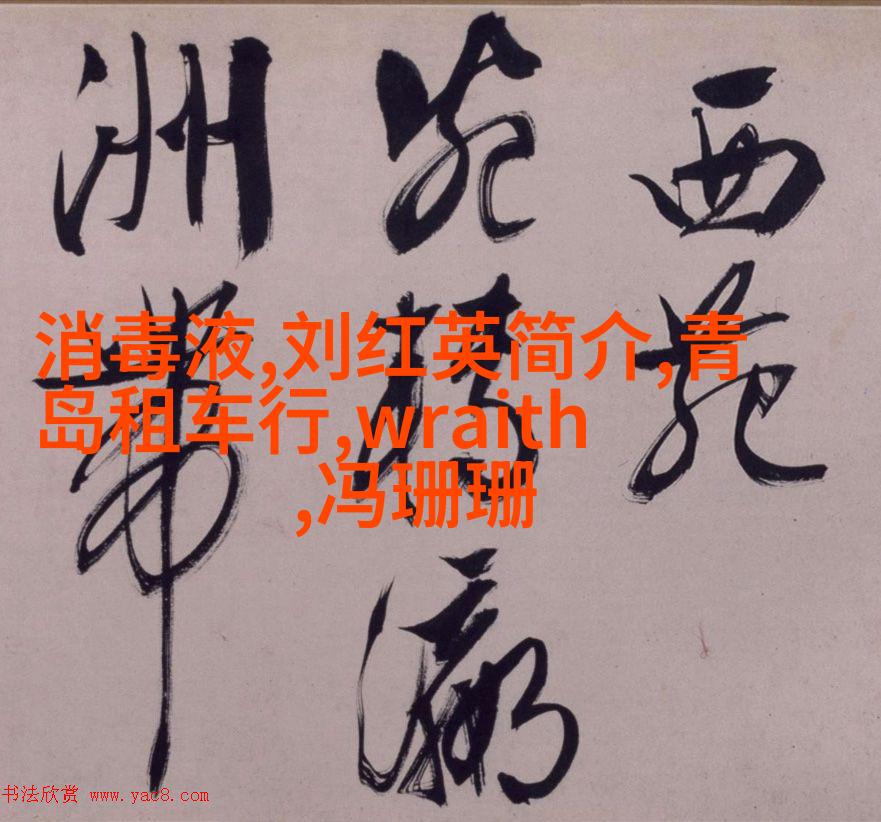 消毒液,刘红英简介,青
岛租车行,wraith
,冯珊珊
西苑
瀛
洲带
书法欣赏 www.yac8.com